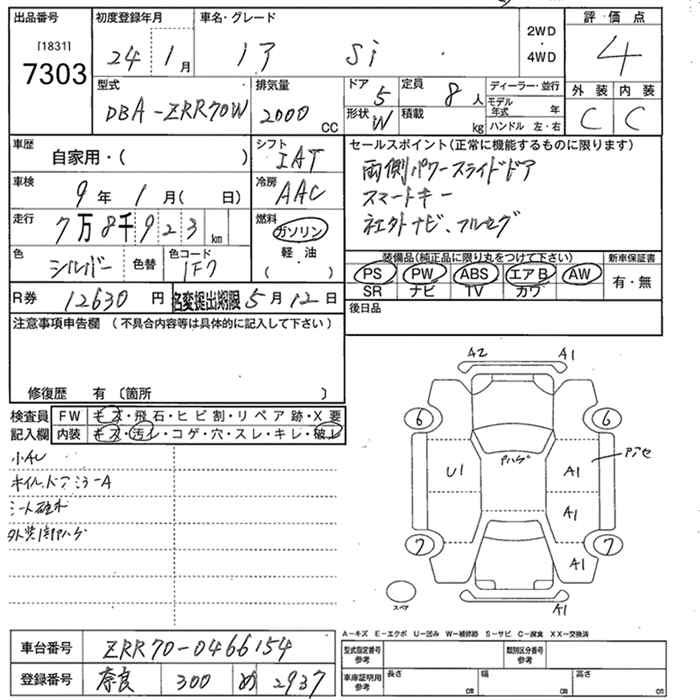 出品番号 初度登録年月 車名・グレード 2WD・4WD 評価点
[1831] 7303
24年 1月 ノア Si 4
型式 排気量 ドア 5 定員 8人 ディーラー・並行 外装 内装
DBA-ZRR70W 2000cc 形状 W 積載 kg モデル年式 年 C C
ハンドル 左・右
車歴 自家用・( ) シフト IAT セールスポイント(正常に機能するものに限ります)
両側パワースライドドア
車検 9年 1月( 日) 冷房 AAC スマートキー
走行 7万8千923km 燃料 ガソリン 社外ナビ、フルセグ
軽・油
( )
色 シルバー 色替 色コード 1F7
装備品(純正品に限り丸をつけて下さい) 新車保証書
PS PW ABS エアB AW 有・無
SR ナビ TV カワ
R券 12630円 名変提出期限 5月12日 後日品
注意事項申告欄 (不具合内容等は具体的に記入して下さい)
修復歴 有 (箇所 )
検査員記入欄 FW キズ・飛石・ヒビ割・リペア跡・X要
内装 キズ・汚レ・コゲ・穴・スレ・キレ・破レ
小AU
A2 A1
6 6
U1 ハゲ A1
A1
7 7
A1
A1
スペア
A-キズ E-エクボ U-凹み W-補修跡 S-サビ C-腐食 XX-交換済
車台番号 ZRR70-0466154
登録番号 奈良 300 め 2937
型式指定番号 参考 類別区分番号 参考
車庫証明用 参考 長さ cm 幅 cm 高さ cm